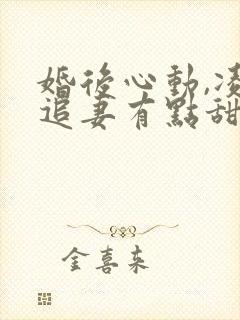 婚後心動,凌
追妻有點甜
金喜来